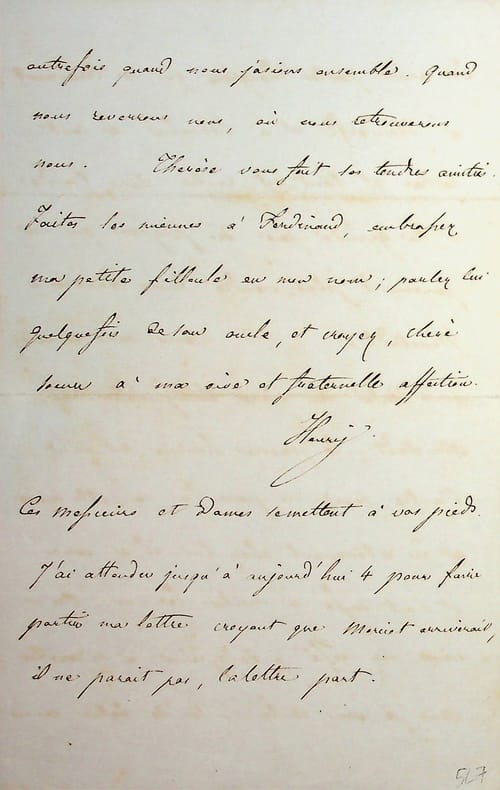 autrefois quand nous jasions ensemble. Quand
nous reverrons nous, où nous retrouverons
nous. Therèse vous fait ses tendres amitiés.
Faites les miennes à Ferdinand, embrassez
ma petite filleule en mon nom ; parlez lui
quelquefois de son oncle, et croyez, chère
soeur à ma vive et fraternelle affection.
Henry
Ces messieurs et Dames se mettent à vos pieds.
J'ai attendu jusqu'à aujourd'hui 4 pour faire
partir ma lettre croyant que arriverait,
il ne parait pas, la lettre part.
527